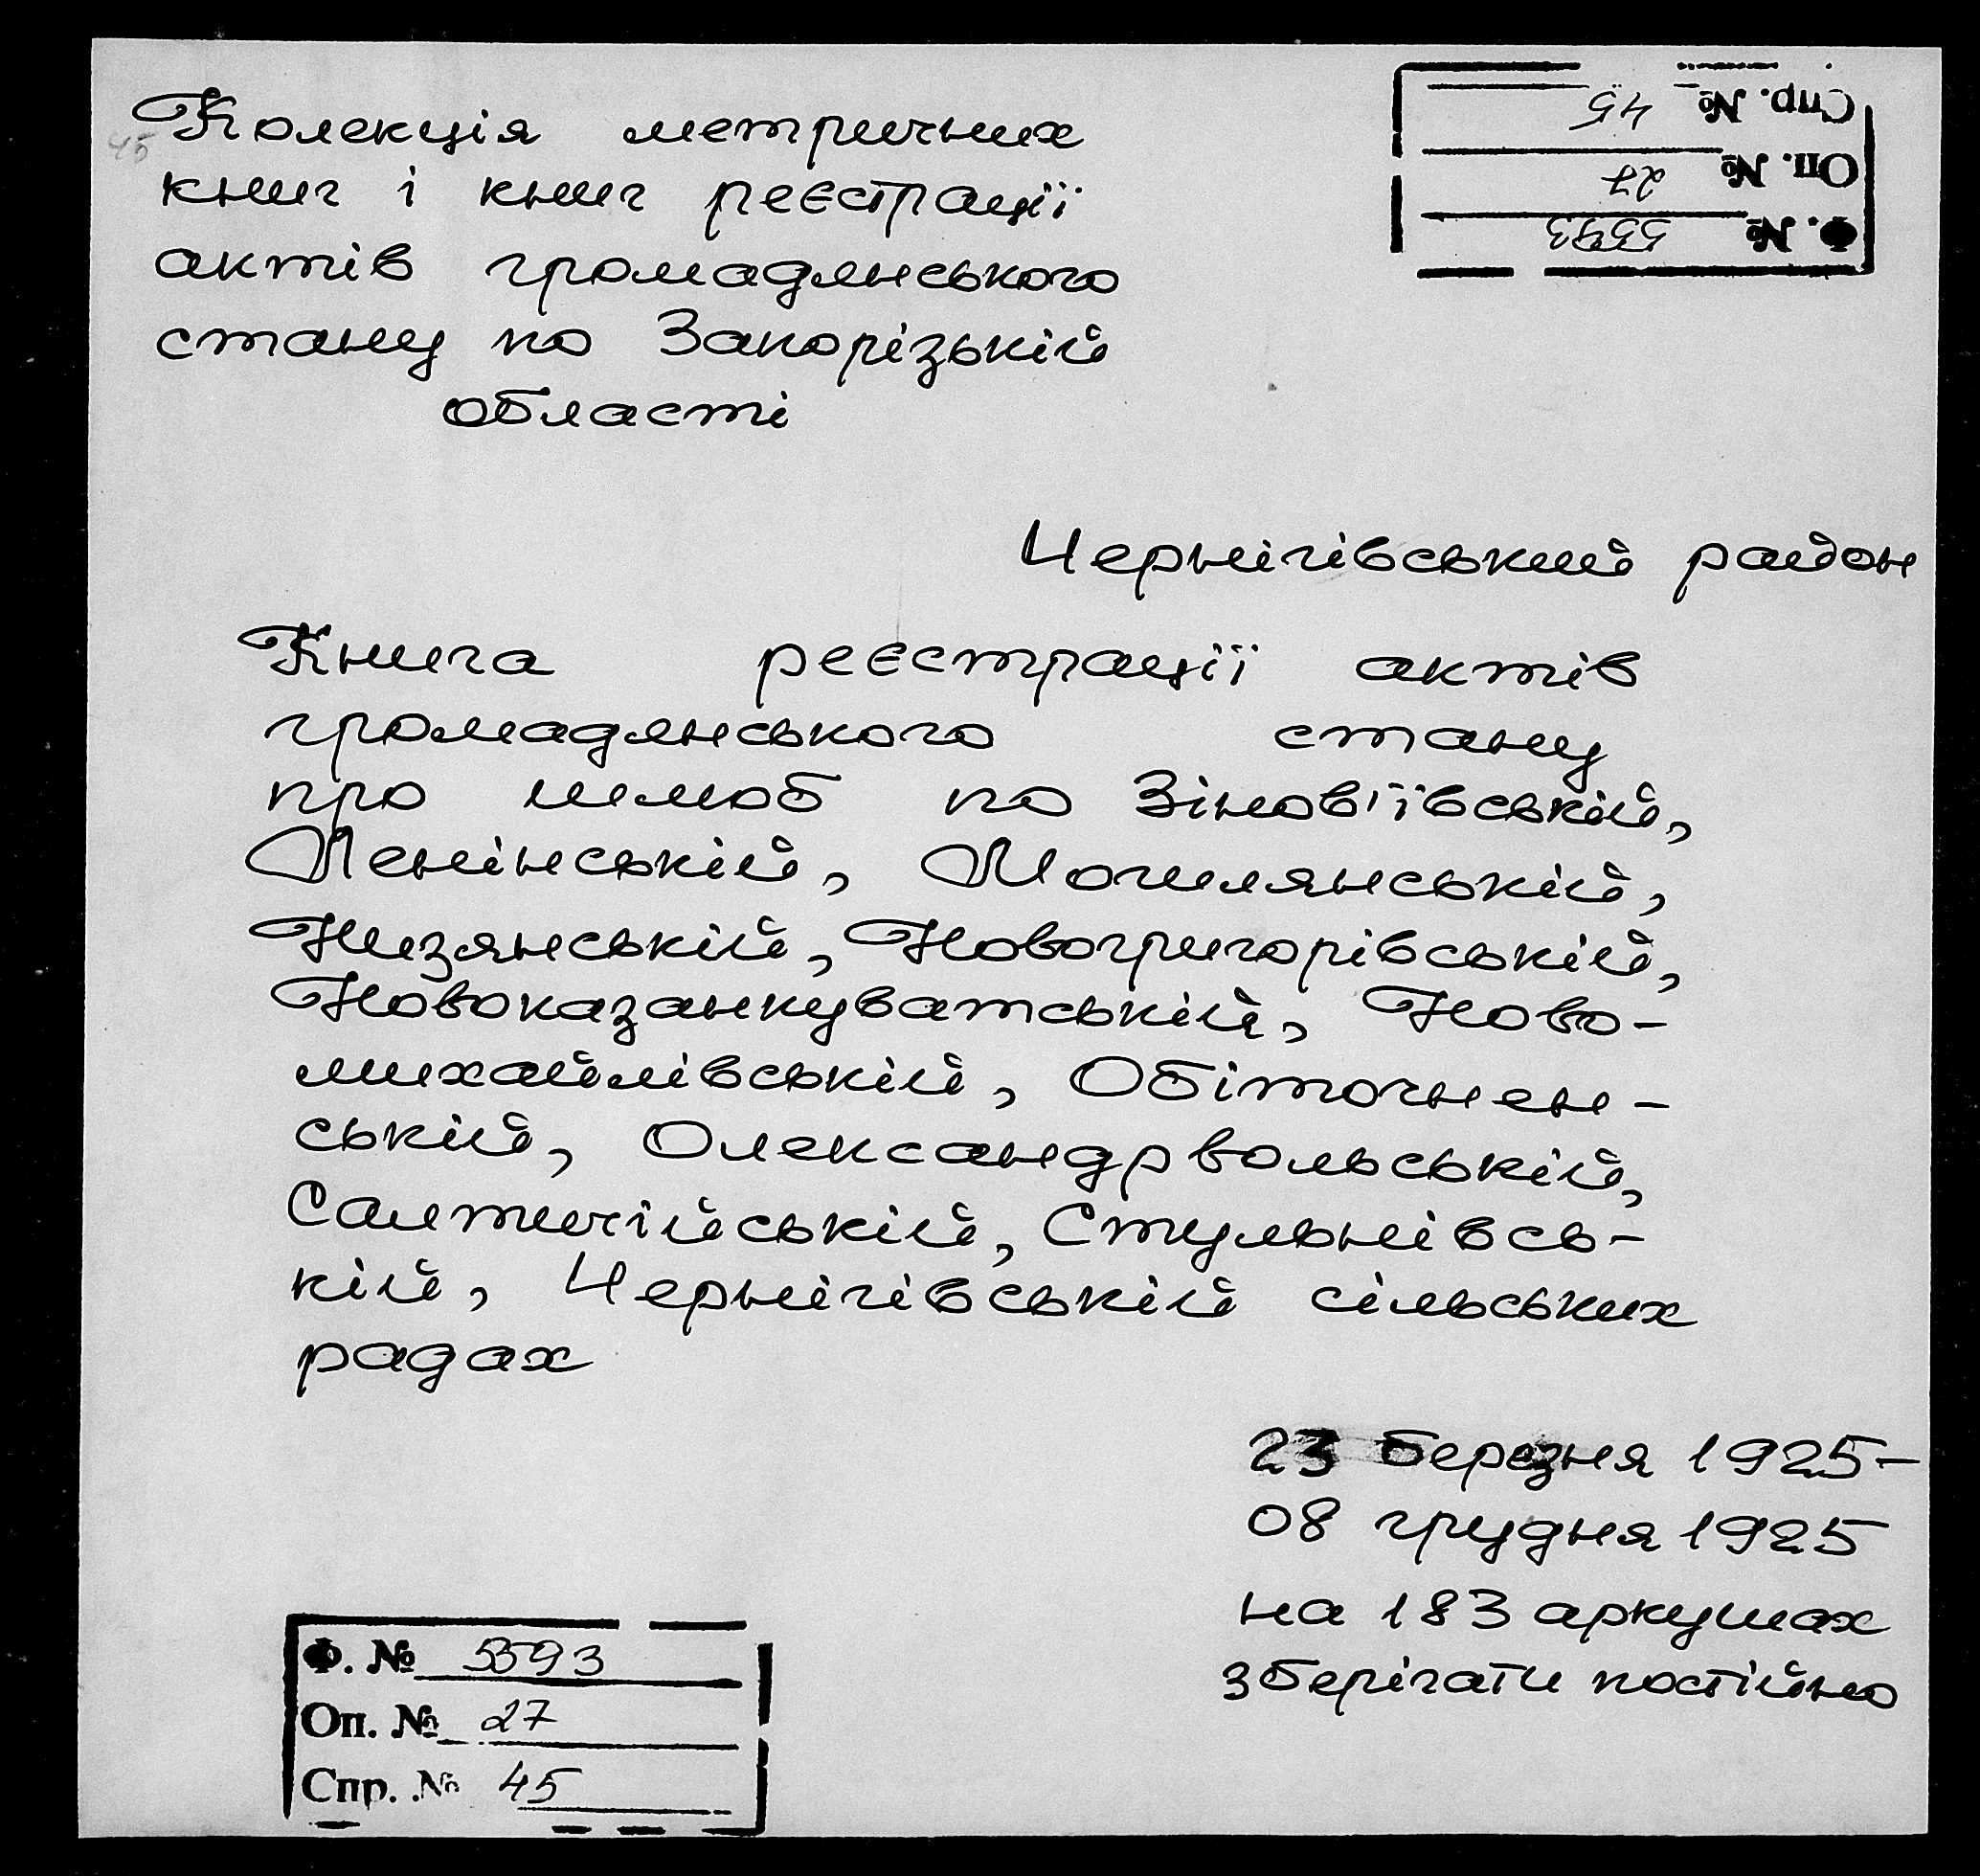 Колекція метричних
45
книг і книг реєстрації
актів громадянського
стану по Запорізькій
області
Спр. № 45
Оп. № 27
Ф. № 5593
Чернігівський район
Книга реєстрації актів
громадянського стану
про шлюб по Зіновіївській,
Ленінській, Могилянській,
Низянській, Новогригорівській,
Новоказанкуватській, Ново-
михайлівській, Обіточнен-
ській, Олександрвольській,
Салтичійській, Стульнівсь-
кій, Чернігівській сільських
радах
23 березня 1925-
08 грудня 1925
на 183 аркушах
зберігати постійно
Ф. № 5593
Оп. № 27
Спр. № 45